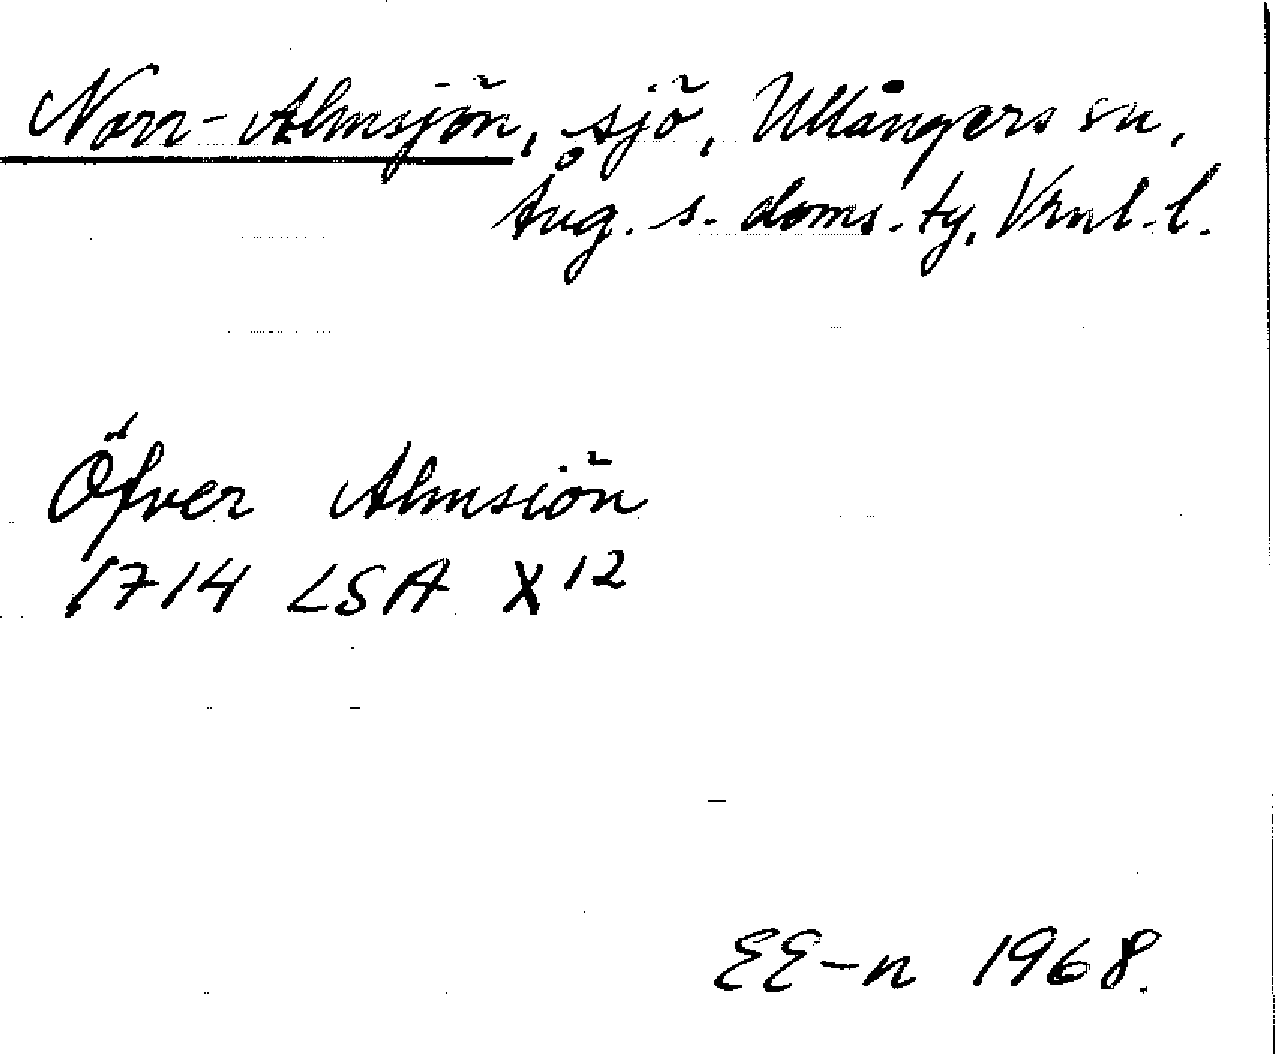 Norr-Almsjön, sjö, Ullångers sn,
Ång. s. doms. tg, Vrnl. l.
Öfver Almsiön
1714 LSA X 12
EE-n 1968.